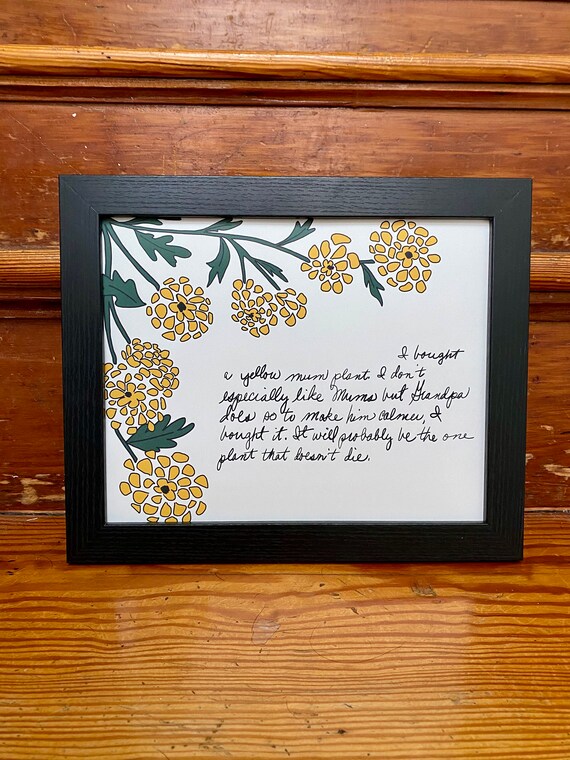 I bought
a yellow mum plant I don't
especially like Mums but Grandpa
does so to make him calmer, I
bought it. It will probably be the one
plant that doesn't die.